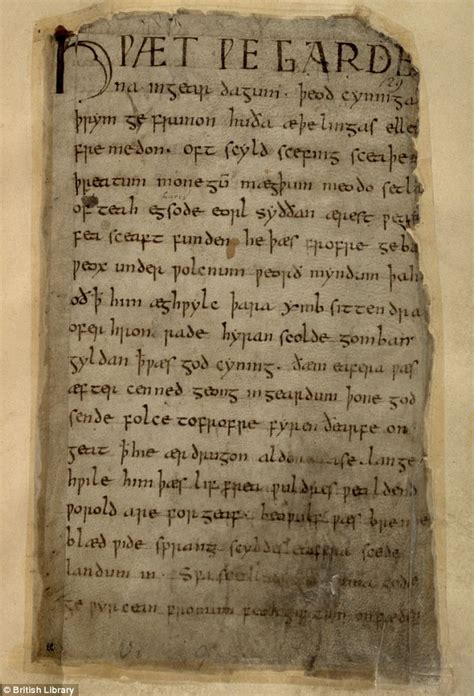 HǷÆT ǷE GARDE
na ingear dagum. þeod cyninga
þrym ge frunon huða æþelingas elle
fremedon. oft scyld scefing sceaþe
þreatum monegū mægþum meodo setla
of teah egsode eorl syððan ærest ƿear
fea sceaft funden he þæs frofre geba
ƿeox under ƿolcnum ƿeorð myndum þah
oð ꝥ him æghƿylc þara ymb sittendra
ofer hron rade hyran scolde gomban
gyldan ꝥ ƿæs god cyning. ðæm eafera ƿæs
æfter cenned geong ingeardum þone god
sende folce tofrofre fyren ðearfe on
geat ꝥ hie ær drugon aldor ase. lange
hƿile him þæs lif frea ƿuldres ƿealdend
ƿorold are for geaf. beoƿulf ƿæs breme
blæd ƿide sprang scyldes eafera scede
landum in. Sƿa sceal guma gode
ge ƿyrcean fromum feoh giftum on fæder
© British Library